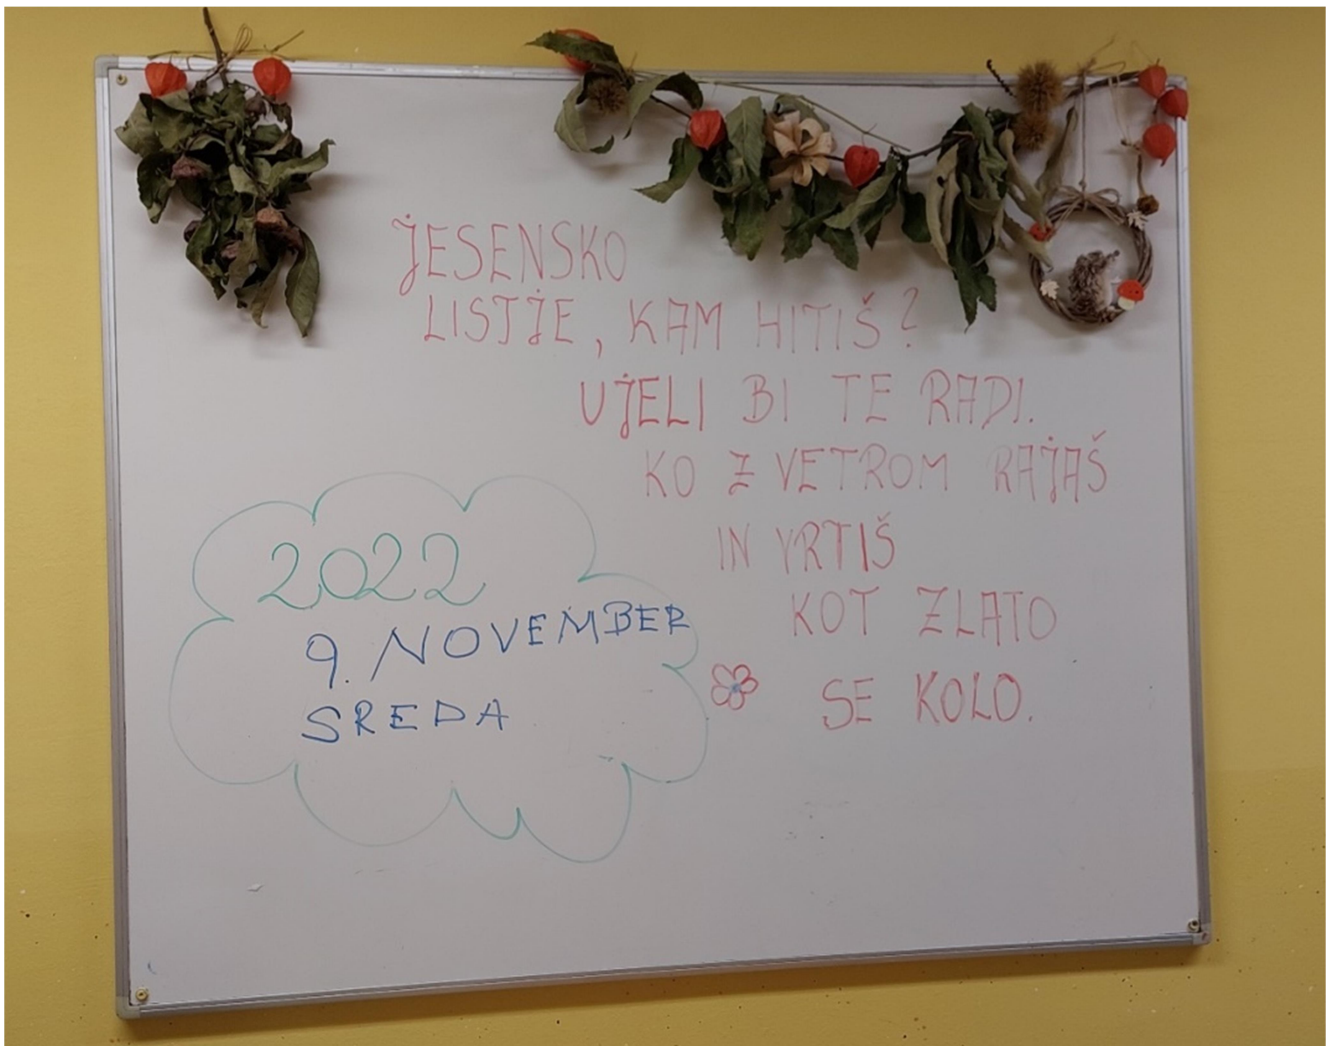 JESENSKO
LISTJE, KAM HITIŠ?
UJELI BI TE RADI.
KO Z VETROM RAJAŠ
IN VRTIŠ
KOT ZLATO
SE KOLO.
2022
9. NOVEMBER
SREDA